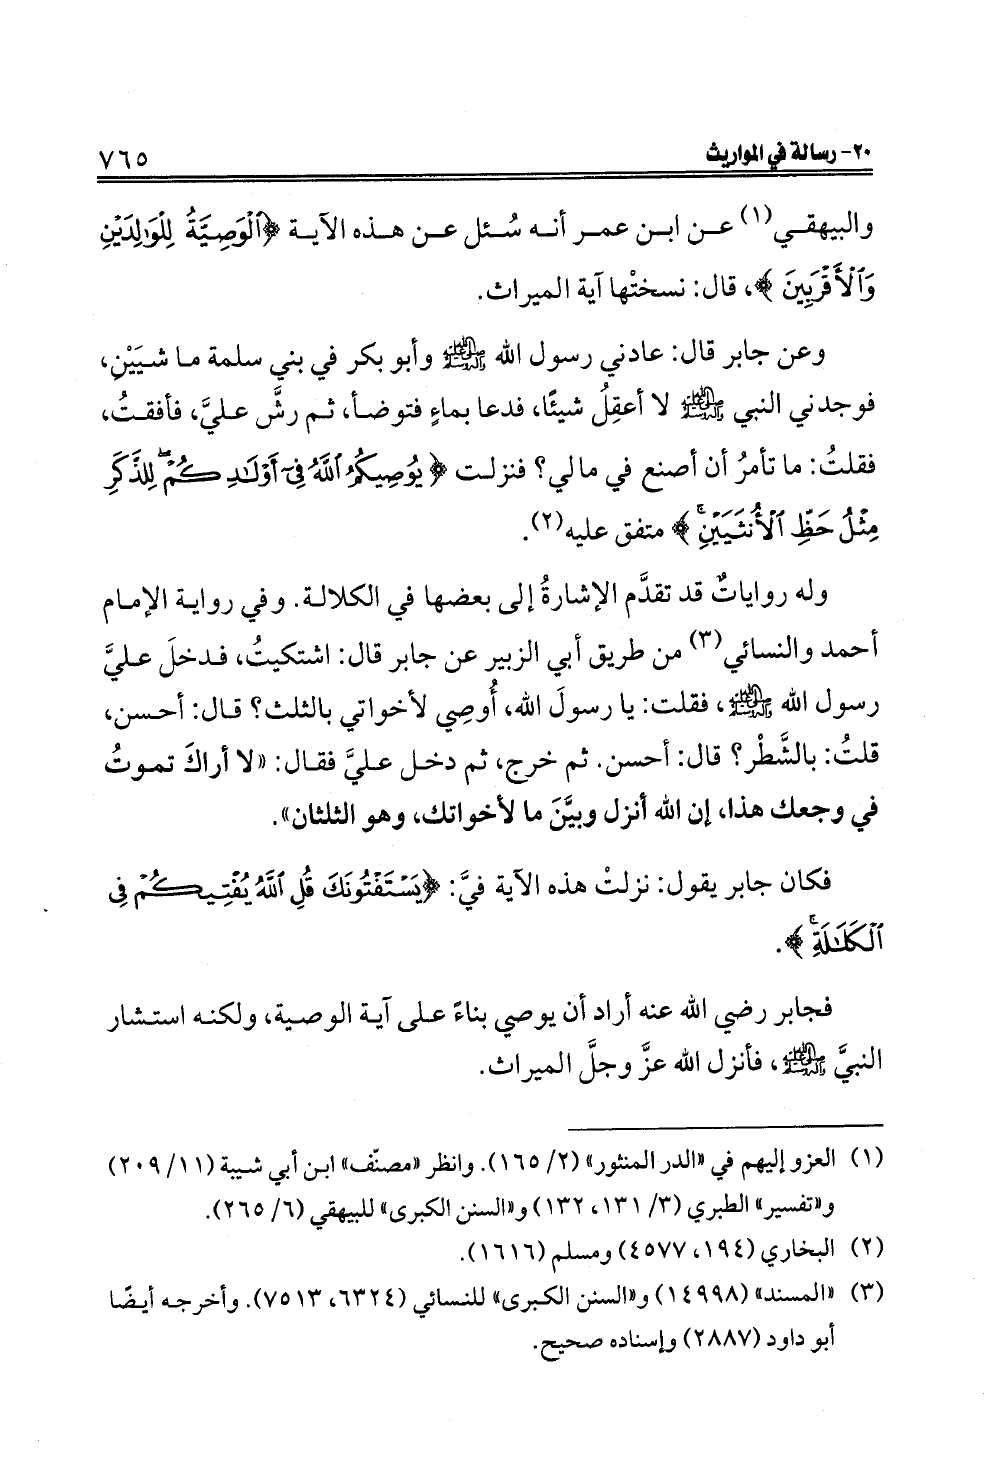 ٢٠- رسالة في المواريث ٧٦٥
والبيهقي(١) عن ابن عمر أنه سُئل عن هذه الآية ﴿ٱلْوَصِيَّةُ لِلْوَٰلِدَيْنِ
وَٱلْأَقْرَبِينَ﴾، قال: نسختْها آية الميراث.
وعن جابر قال: عادني رسول الله ﷺ وأبو بكر في بني سلمة ما شيَيْنِ،
فوجدني النبي ﷺ لا أعقِلُ شيئًا، فدعا بماءٍ فتوضأ، ثم رشَّ عليَّ، فأفقتُ،
فقلتُ: ما تأمرُ أن أصنع في مالي؟ فنزلت ﴿يُوصِيكُمُ ٱللَّهُ فِىٓ أَوْلَٰدِكُمْ ۖ لِلذَّكَرِ
مِثْلُ حَظِّ ٱلْأُنثَيَيْنِ ۚ﴾ متفق عليه(٢).
وله رواياتٌ قد تقدَّم الإشارةُ إلى بعضها في الكلالة. وفي رواية الإمام
أحمد والنسائي(٣) من طريق أبي الزبير عن جابر قال: اشتكيتُ، فدخلَ عليَّ
رسول الله ﷺ، فقلت: يا رسولَ الله، أُوصِي لأخواتي بالثلث؟ قال: أحسن،
قلتُ: بالشَّطْر؟ قال: أحسن. ثم خرج، ثم دخل عليَّ فقال: «لا أراكَ تموتُ
في وجعك هذا، إن الله أنزل وبيَّنَ ما لأخواتك، وهو الثلثان».
فكان جابر يقول: نزلتْ هذه الآية فيَّ: ﴿يَسْتَفْتُونَكَ قُلِ ٱللَّهُ يُفْتِيكُمْ فِى
ٱلْكَلَٰلَةِ ۚ﴾.
فجابر رضي الله عنه أراد أن يوصي بناءً على آية الوصية، ولكنه استشار
النبيَّ ﷺ، فأنزل الله عزَّ وجلَّ الميراث.
(١) العزو إليهم في «الدر المنثور» (٢/ ١٦٥). وانظر «مصنّف» ابن أبي شيبة (١١/ ٢٠٩)
و«تفسير» الطبري (٣/ ١٣١، ١٣٢) و«السنن الكبرى» للبيهقي (٦/ ٢٦٥).
(٢) البخاري (١٩٤، ٤٥٧٧) ومسلم (١٦١٦).
(٣) «المسند» (١٤٩٩٨) و«السنن الكبرى» للنسائي (٦٣٢٤، ٧٥١٣). وأخرجه أيضًا
أبو داود (٢٨٨٧) وإسناده صحيح.